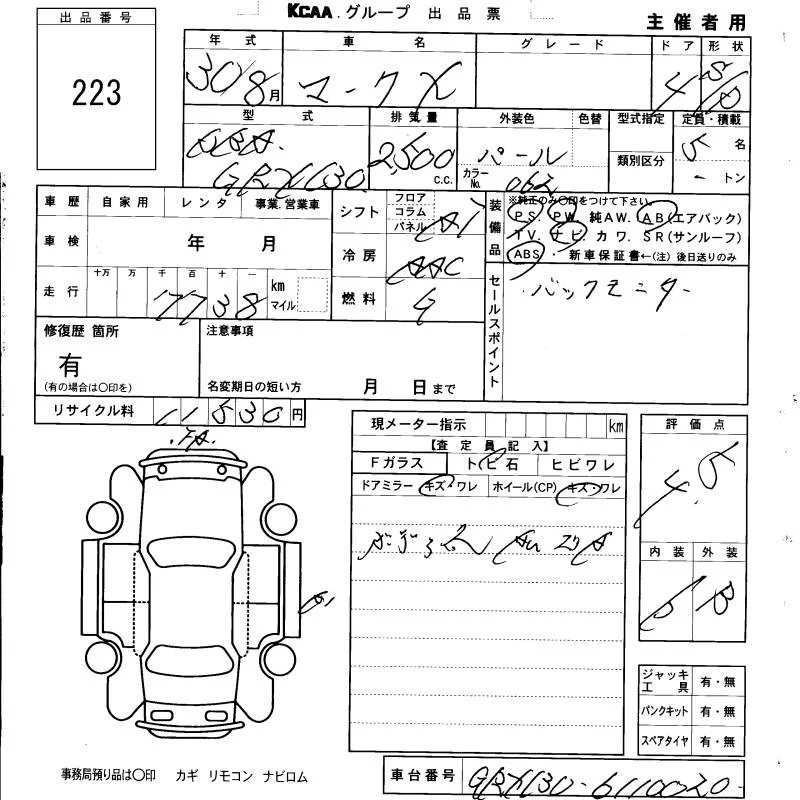 KCAA グループ 出品票
主催者用
出品番号
223
年式 車名 グレード ドア 形状
30/8月 マークX 4 S/D
型式 排気量 外装色 色替 型式指定 定員・積載
DBA GRX130 2,500 C.C. パール カラーNo. 062 類別区分 5 名
- トン
車歴 自家用 レンタ 事業.営業車
車検 年 月
十万 万 千 百 十 一
走行 17738 km マイル
シフト フロア コラム パネル AT
冷房 AAC
燃料 G
装備品
※純正のみ〇印をつけて下さい。
PS. PW. 純AW. AB(エアバック)
TV. ナビ. カワ. SR(サンルーフ)
ABS ・ 新車保証書←(注) 後日送りのみ
セールスポイント
バックモニター
修復歴 箇所
有
(有の場合は〇印を)
注意事項
名変期日の短い方 月 日まで
リサイクル料 11830円
現メーター指示 km
【査定員記入】
Fガラス トビ石 ヒビワレ
ドアミラー キズ・ワレ ホイール(CP) キズ・ワレ
評価点
4.5
内装 外装
B B
A1
ジャッキ 工具 有・無
パンクキット 有・無
スペアタイヤ 有・無
事務局預り品は〇印 カギ リモコン ナビロム
車台番号 GRX130-6110020